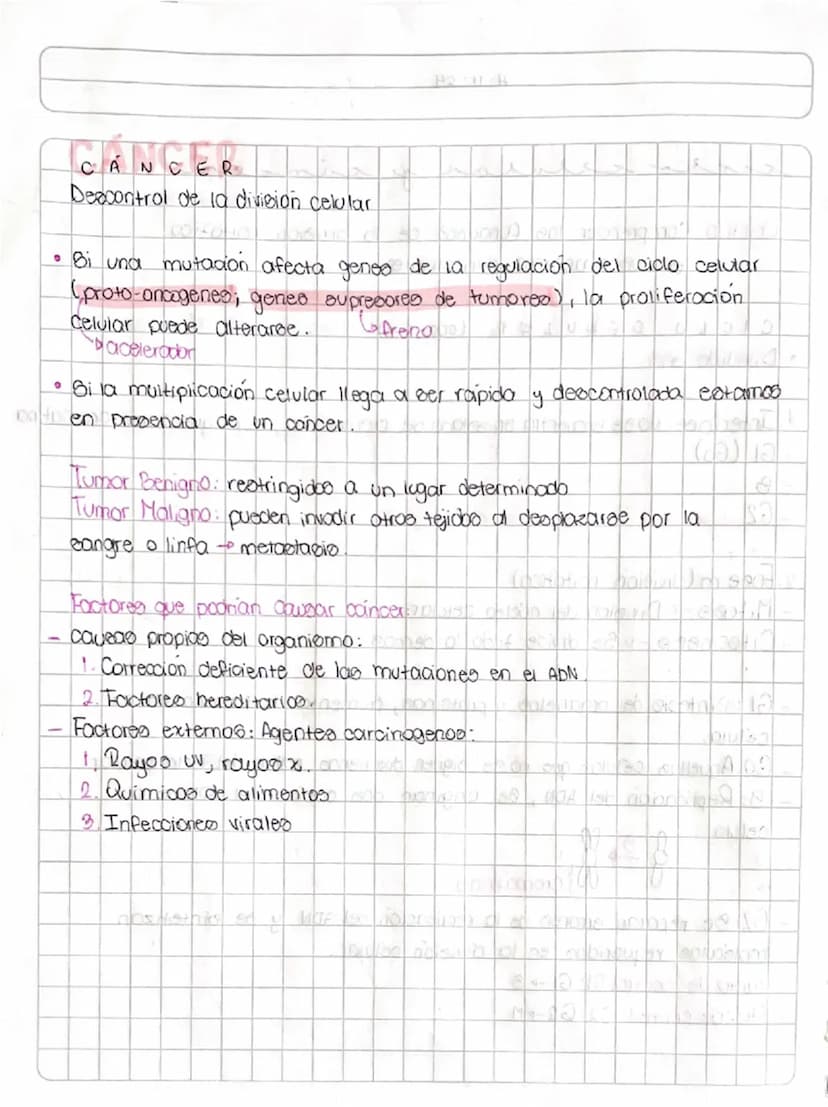 CÁNCER
Descontrol de la división celular
• Si una mutación afecta genes de la regulación del ciclo celular
(proto-oncogenes, genes supresores de tumores), la proliferación
celular puede alterarse. ↳ freno
↳ acelerador
• Si la multiplicación celular llega a ser rápida y descontrolada estamos
en presencia de un cáncer.
Tumor Benigno: restringidos a un lugar determinado
Tumor Maligno: pueden invadir otros tejidos al desplazarse por la
sangre o linfa → metastasis.
Factores que podrían causar cáncer:
- causas propias del organismo:
1. Corrección deficiente de las mutaciones en el ADN.
2. Factores hereditarios.
- Factores externos: Agentes carcinogenos:
1. Rayos UV, rayos x.
2. Químicos de alimentos
3. Infecciones virales